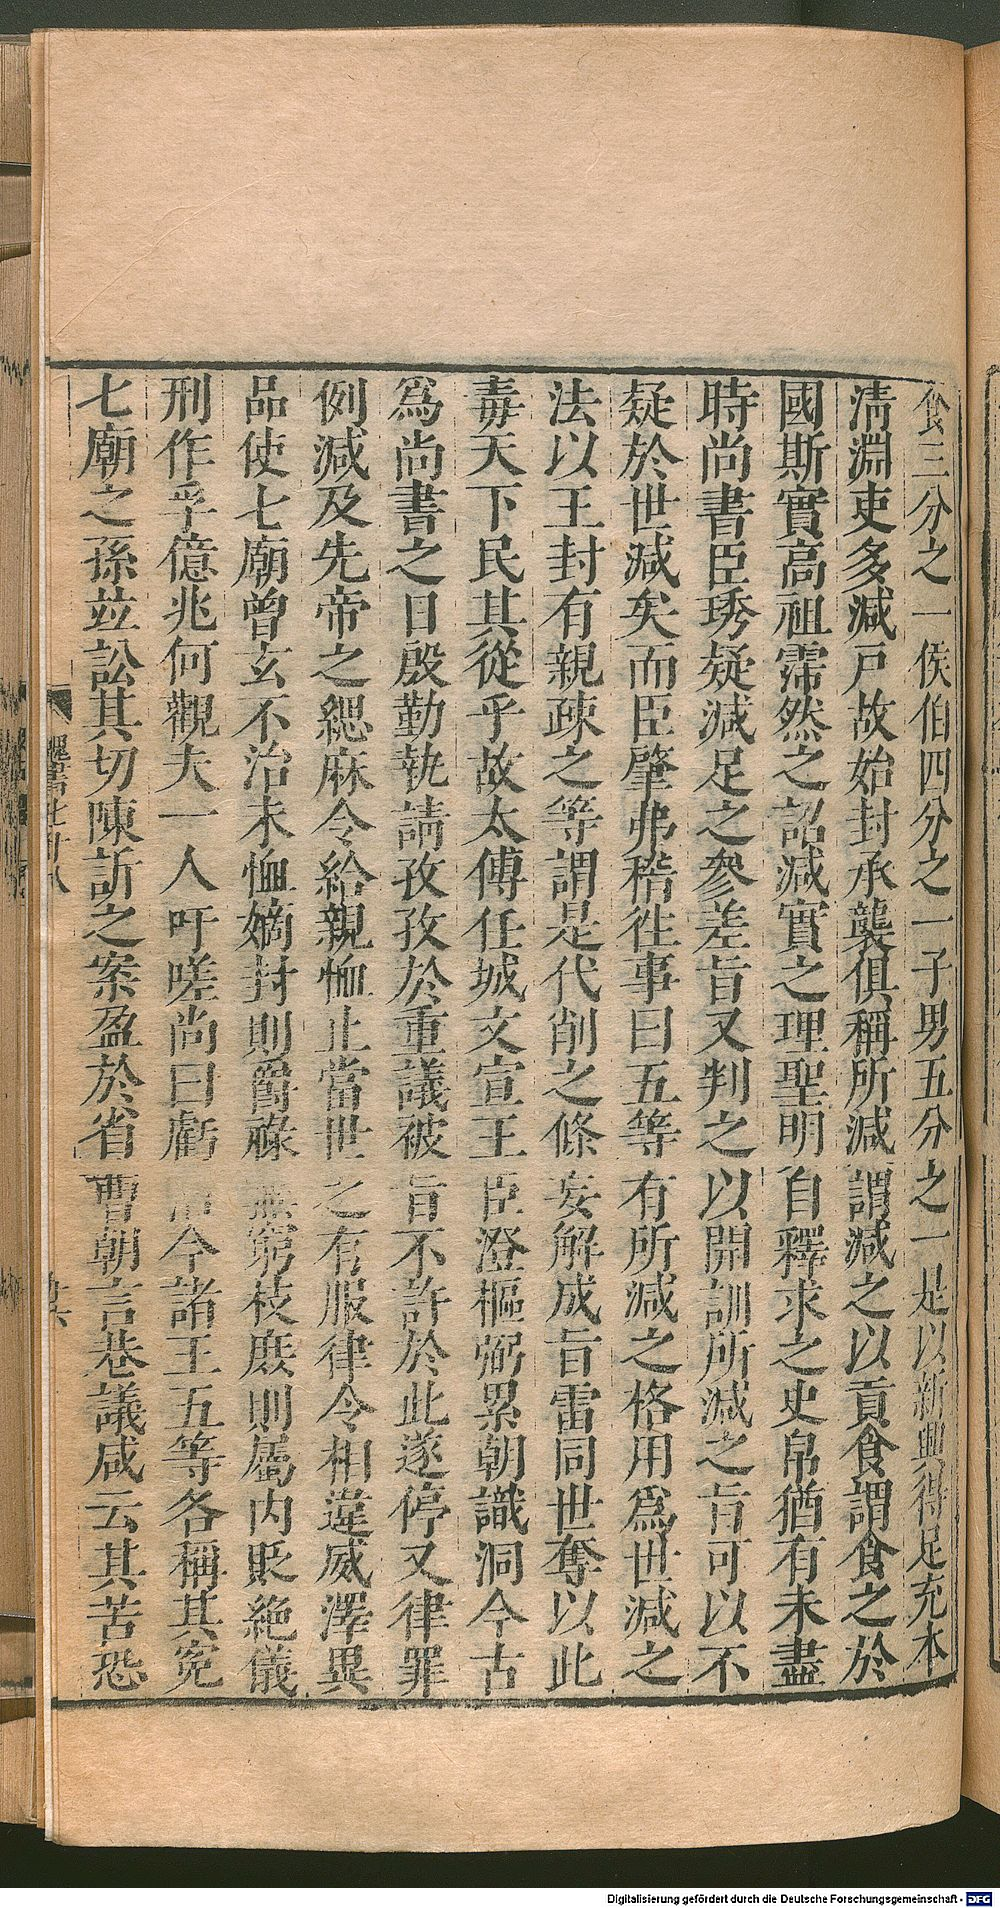 食三分之一侯伯四分之一子男五分之一是以新興得足充本
清淵吏多減戸故始封承襲俱稱所減謂減之以貢食謂食之於
國斯實高祖霈然之詔減實之理聖明自釋求之史帛猶有未盡
時尚書臣琇疑減足之參差旨又判之以開訓所減之旨可以不
疑於世減矣而臣肇弗稽徃事曰五等有所減之格用爲世減之
法以王封有親疎之等謂是代削之條妄解成旨雷同世奪以此
毒天下民其從乎故太傅任城文宣王臣澄樞弼累朝識洞今古
爲尚書之日殷勤執請孜孜於重議被旨不許於此遂停又律罪
例減及先帝之緦麻令給親恤止當世之有服律令相違威澤異
品使七廟曾玄不治未恤嫡封則爵祿無窮枝庶則屬内貶絶儀
刑作孚億兆何觀夫一人吁嗟尚曰虧今諸王五等各稱其寃
七廟之孫竝訟其切陳訴之案盈於省曹朝言巷議咸云其苦恐
魏書七十八
Digitalisierung gefördert durch die Deutsche Forschungsgemeinschaft - DFG